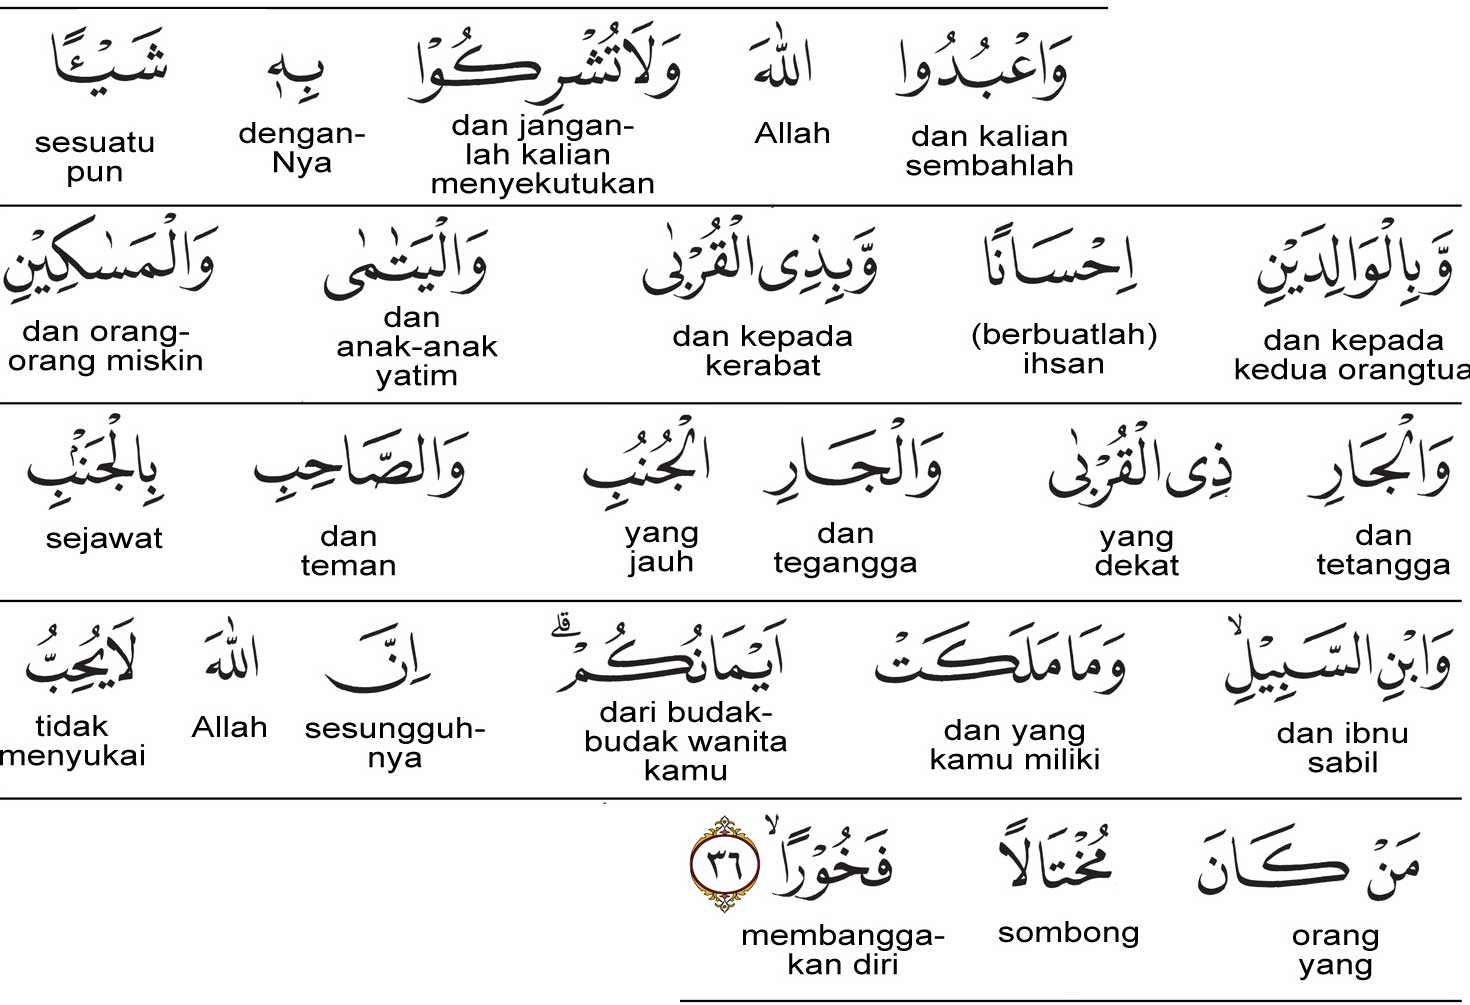 وَاعْبُدُوا اللّٰهَ وَلَا تُشْرِكُوْا بِهٖ شَيْـًٔا
dan kalian sembahlah Allah dan jangan-lah kalian menyekutukan dengan-Nya sesuatu pun
وَّبِالْوَالِدَيْنِ اِحْسَانًا وَّبِذِى الْقُرْبٰى وَالْيَتٰمٰى وَالْمَسٰكِيْنِ
dan kepada kedua orangtua (berbuatlah) ihsan dan kepada kerabat dan anak-anak yatim dan orang-orang miskin
وَالْجَارِ ذِى الْقُرْبٰى وَالْجَارِ الْجُنُبِ وَالصَّاحِبِ بِالْجَنْۢبِ
dan tetangga yang dekat dan tegangga yang jauh dan teman sejawat
وَابْنِ السَّبِيْلِۙ وَمَا مَلَكَتْ اَيْمَانُكُمْۗ اِنَّ اللّٰهَ لَا يُحِبُّ
dan ibnu sabil dan yang kamu miliki dari budak-budak wanita kamu sesungguh-nya Allah tidak menyukai
مَنْ كَانَ مُخْتَالًا فَخُوْرًاۙ ٣٦
orang yang sombong membangga-kan diri